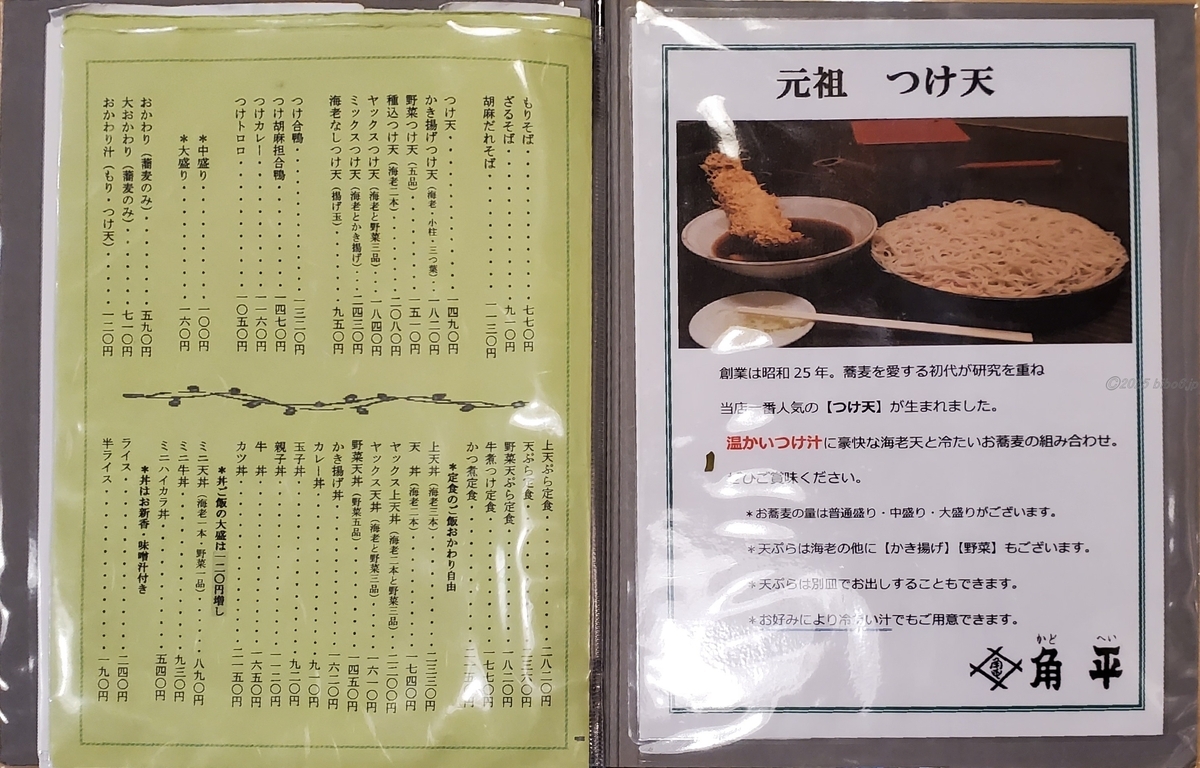 もりそば・・・・・・・・・七七〇円
ざるそば・・・・・・・・・九一〇円
胡麻だれそば・・・・・・・一一三〇円
つけ天・・・・・・・・・・一四九〇円
かき揚げつけ天（海老・小柱・三つ葉）・一八二〇円
野菜つけ天（五品）・・・・・一五一〇円
種込つけ天（海老二本）・・・二〇八〇円
ヤックスつけ天（海老と野菜三品）・・一八四〇円
ミックスつけ天（海老とかき揚げ）・・二四三〇円
海老なしつけ天（揚げ玉）・・・・九五〇円
つけ合鴨・・・・・・・・・一三二〇円
つけ胡麻担合鴨・・・・・・一四七〇円
つけカレー・・・・・・・・一一六〇円
つけトロロ・・・・・・・・一〇五〇円
＊中盛り・・・・・・・・・一〇〇円
＊大盛り・・・・・・・・・一六〇円
おかわり（蕎麦のみ）・・・・・五九〇円
大おかわり（蕎麦のみ）・・・・七一〇円
おかわり汁（もり・つけ天）・・・一二〇円
上天ぷら定食・・・・・・・二八二〇円
天ぷら定食・・・・・・・・
野菜天ぷら定食・・・・・・一八二〇円
牛煮つけ定食・・・・・・・一七七〇円
かつ煮定食・・・・・・・・
＊定食のご飯おかわり自由
上天丼（海老三本）・・・・・二三三〇円
天　丼（海老二本）・・・・・一七四〇円
ヤックス上天丼（海老二本と野菜三品）・二二〇〇円
ヤックス天丼（海老と野菜三品）・・・一六一〇円
野菜天丼（野菜五品）・・・・一四五〇円
かき揚げ丼・・・・・・・・一六二〇円
カレー丼・・・・・・・・・九一〇円
玉子丼・・・・・・・・・・九二〇円
親子丼・・・・・・・・・・一一二〇円
牛　丼・・・・・・・・・・一六五〇円
カツ丼・・・・・・・・・・二一五〇円
＊丼ご飯の大盛は一二〇円増し
ミニ天丼（海老一本・野菜一品）・・・八九〇円
ミニ牛丼・・・・・・・・・九三〇円
ミニハイカラ丼・・・・・・五四〇円
＊丼はお新香・味噌汁付き
ライス・・・・・・・・・・二四〇円
半ライス・・・・・・・・・一九〇円
元祖　つけ天
創業は昭和25年。蕎麦を愛する初代が研究を重ね
当店一番人気の【つけ天】が生まれました。
温かいつけ汁に豪快な海老天と冷たいお蕎麦の組み合わせ。
ぜひご賞味ください。
＊お蕎麦の量は普通盛り・中盛り・大盛りがございます。
＊天ぷらは海老の他に【かき揚げ】【野菜】もございます。
＊天ぷらは別皿でお出しすることもできます。
＊お好みにより冷たい汁でもご用意できます。
かど　へい
角平